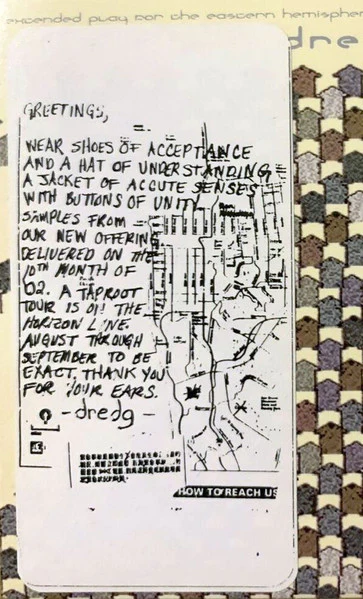 extended play for the eastern hemispher
dre
GREETINGS,
WEAR SHOES OF ACCEPTANCE
AND A HAT OF UNDERSTANDING
A JACKET OF ACCUTE SENSES
WITH BUTTONS OF UNITY
SAMPLES FROM
OUR NEW OFFERING
DELIVERED ON THE
10TH MONTH OF
02. A TAPROOT
TOUR IS ON THE
HORIZON LINE.
AUGUST THROUGH
SEPTEMBER TO BE
EXACT. THANK YOU
FOR YOUR EARS.
-dredg-
HOW TO REACH US